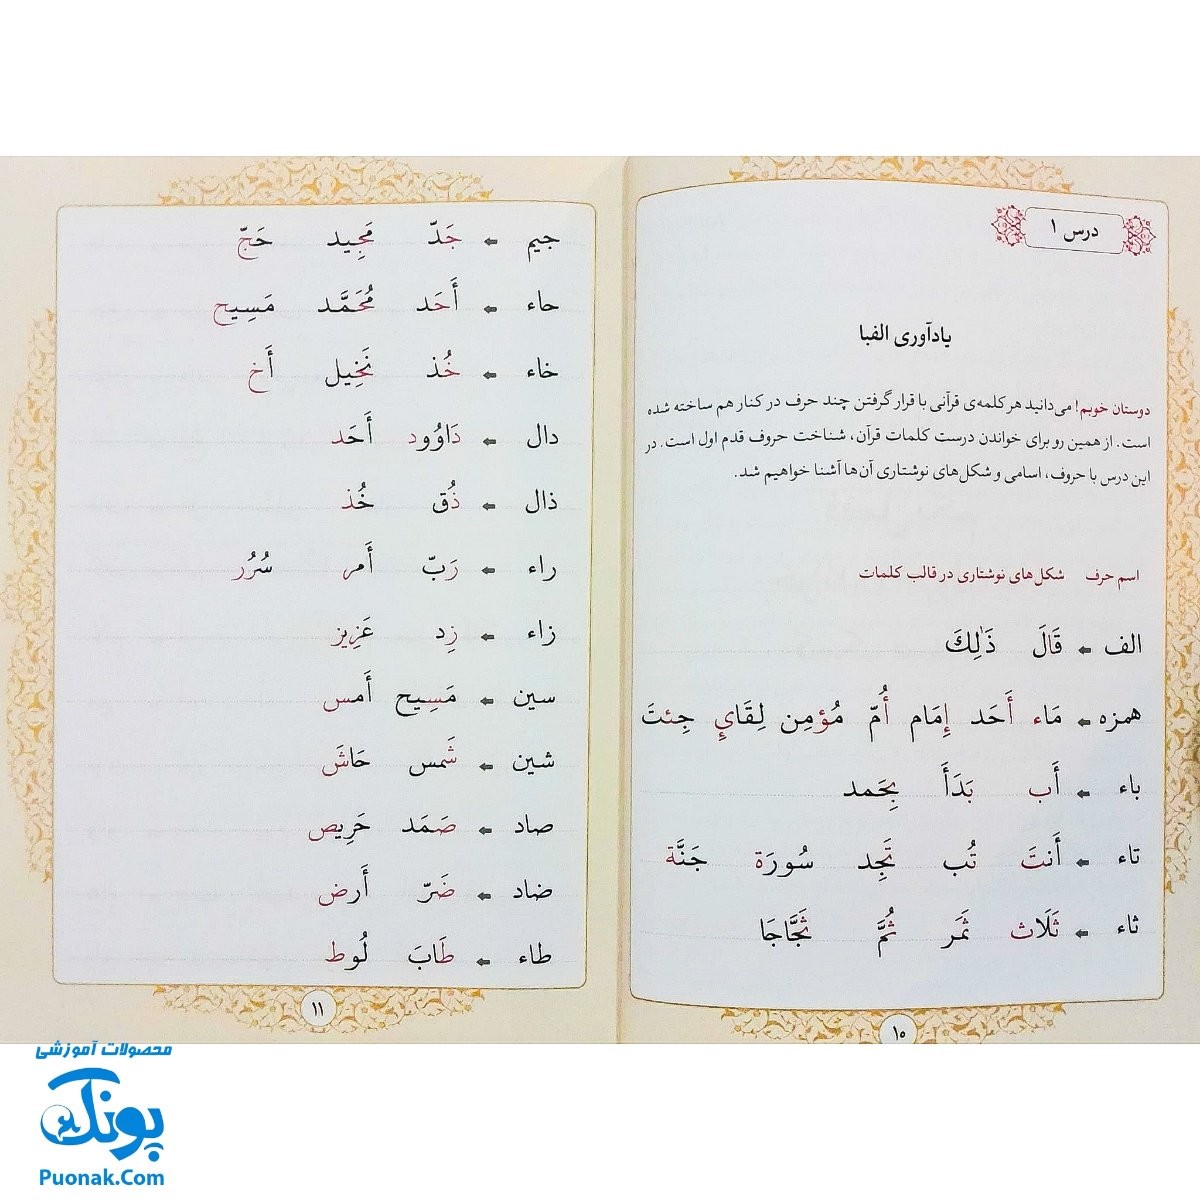 درس ۱
یادآوری الفبا
دوستان خوبم! می‌دانید هر کلمه‌ی قرآنی با قرار گرفتن چند حرف در کنار هم ساخته شده
است. از همین رو برای خواندن درست کلمات قرآن، شناخت حروف قدم اول است. در
این درس با حروف، اسامی و شکل‌های نوشتاری آن‌ها آشنا خواهیم شد.
اسم حرف شکل‌های نوشتاری در قالب کلمات
الف ← قَالَ ذَٰلِكَ
همزه ← مَاء أَحَد إِمَام أُمّ مُؤمِن لِقَايِٕ جِئتَ
باء ← أَب بَدَأَ بِحَمد
تاء ← أَنتَ تُب تَجِد سُورَة جَنَّة
ثاء ← ثَلَاث ثَمَر ثُمَّ ثَجَّاجَا
۱۰
جیم ← جَدّ مَجِيد حَجّ
حاء ← أَحَد مُحَمَّد مَسِيح
خاء ← خُذ نَخِيل أَخ
دال ← دَاوُود أَحَد
ذال ← ذُق خُذ
راء ← رَبّ أَمر سُرُر
زاء ← زِد عَزِيز
سین ← مَسِيح أَمس
شین ← شَمس حَاشَ
صاد ← صَمَد حَرِيص
ضاد ← ضَرّ أَرض
طاء ← طَابَ لُوط
۱۱
محصولات آموزشی
پونک
Puonak.Com